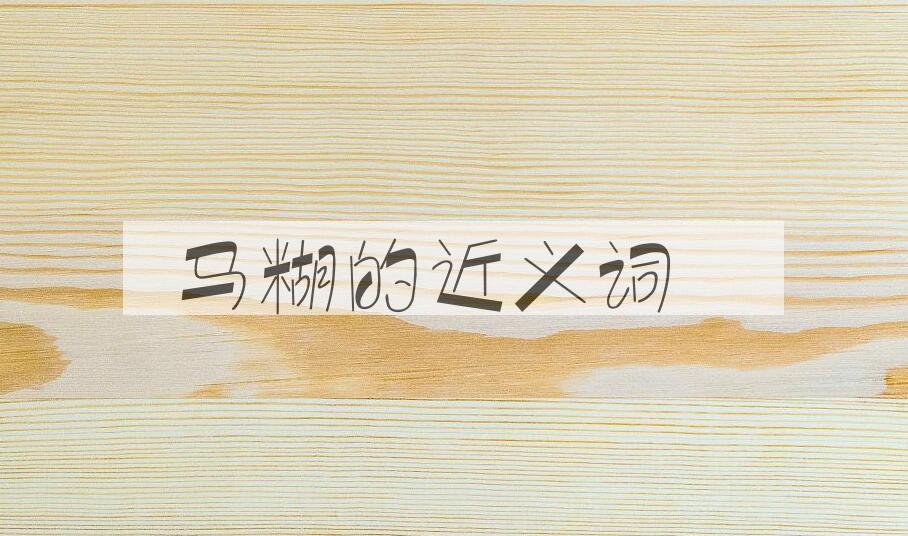 马糊的近义词